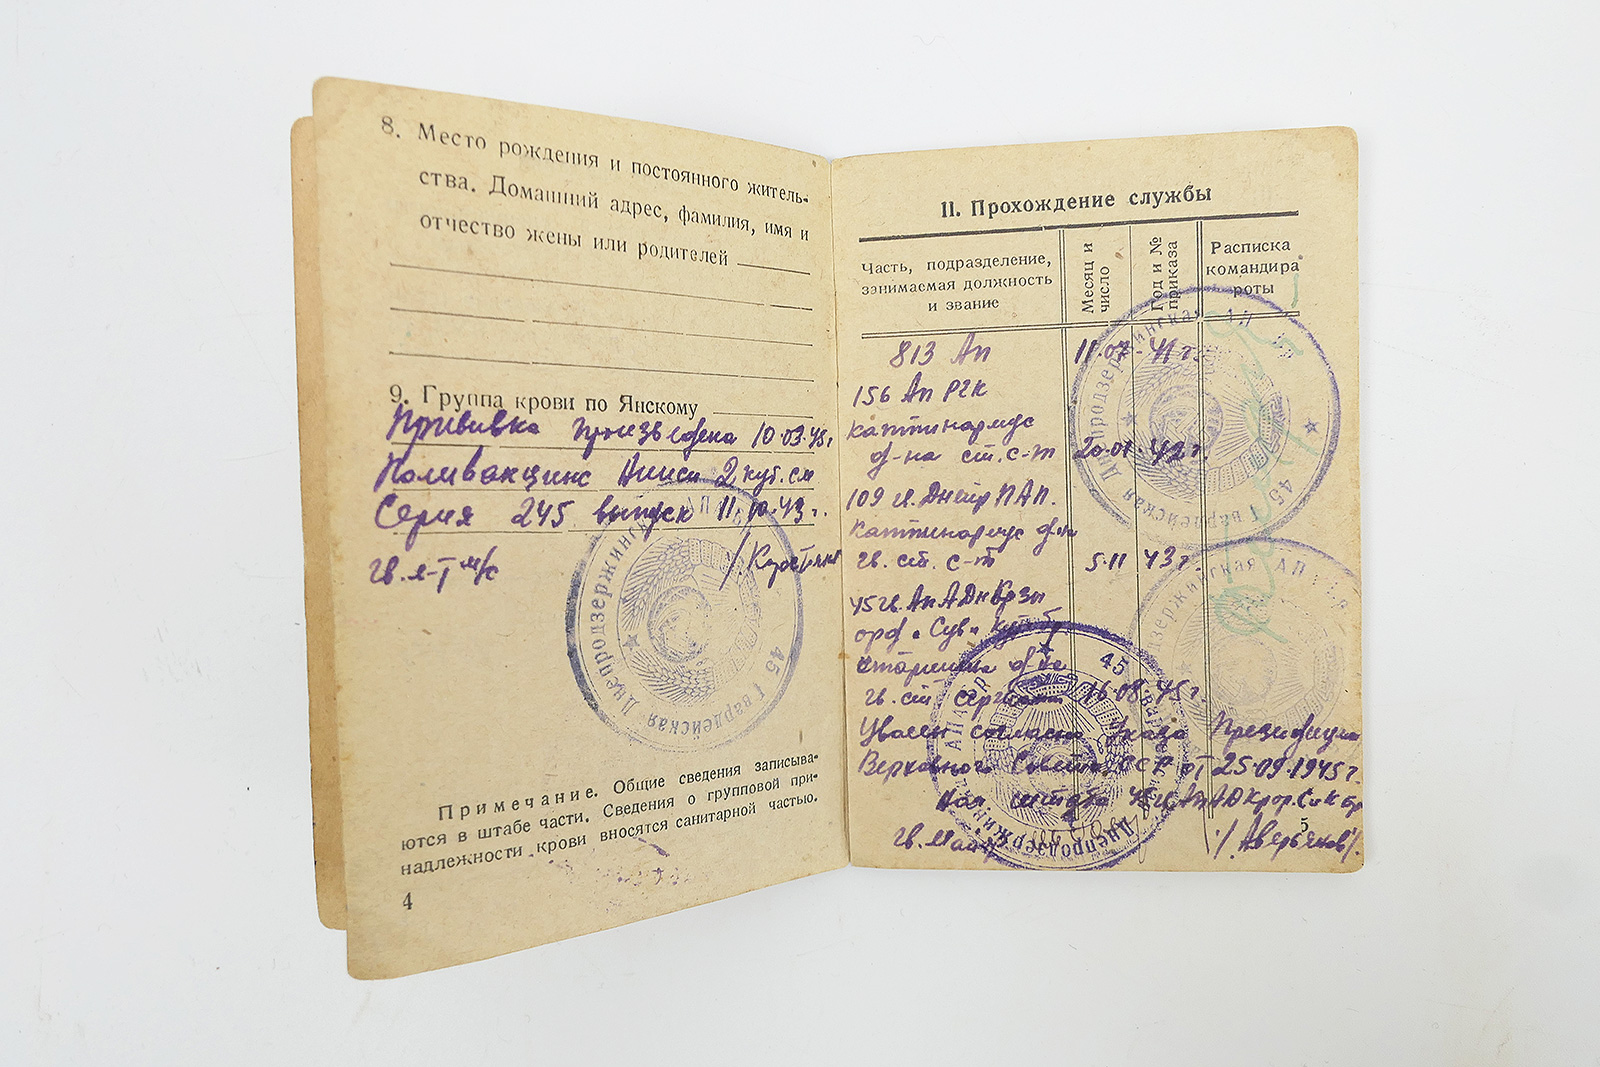 8. Место рождения и постоянного житель-
ства. Домашний адрес, фамилия, имя и
отчество жены или родителей
9. Группа крови по Янскому
Прививка произведена 10.03.45г
Поливакцина Нииси 2 куб. см
Серия 245 выпуск 11.10.43 г.
гв. л-т м/с
45 Гвардейская Днепродзержинская
Примечание. Общие сведения записыва-
ются в штабе части. Сведения о групповой при-
надлежности крови вносятся санитарной частью.
4
11. Прохождение службы
Часть, подразделение,
занимаемая должность
и звание
Месяц и
число
Год и №
приказа
Расписка
командира
роты
813 Ап 11.07.41 г.
156 Ап РГК
каптинармус
д-на ст. с-т 20.01.42 г.
109 гв. Днепр ПАП.
каптинармус д-н
гв. ст. с-т 5.11 43 г.
45 гв. АпАДнКрзн
орд. Сув и Кут бр
старшина д-на
гв. ст сержант 16.08.45 г.
Уволен согласно Указа Президиума
Верховного Совета СССР от 25.09.1945 г.
Нач. штаба 45 гв АпАД Кр ор. С и К бр
гв. майор /Аверьянов/.
5
45 Гвардейская Днепродзержинская АП